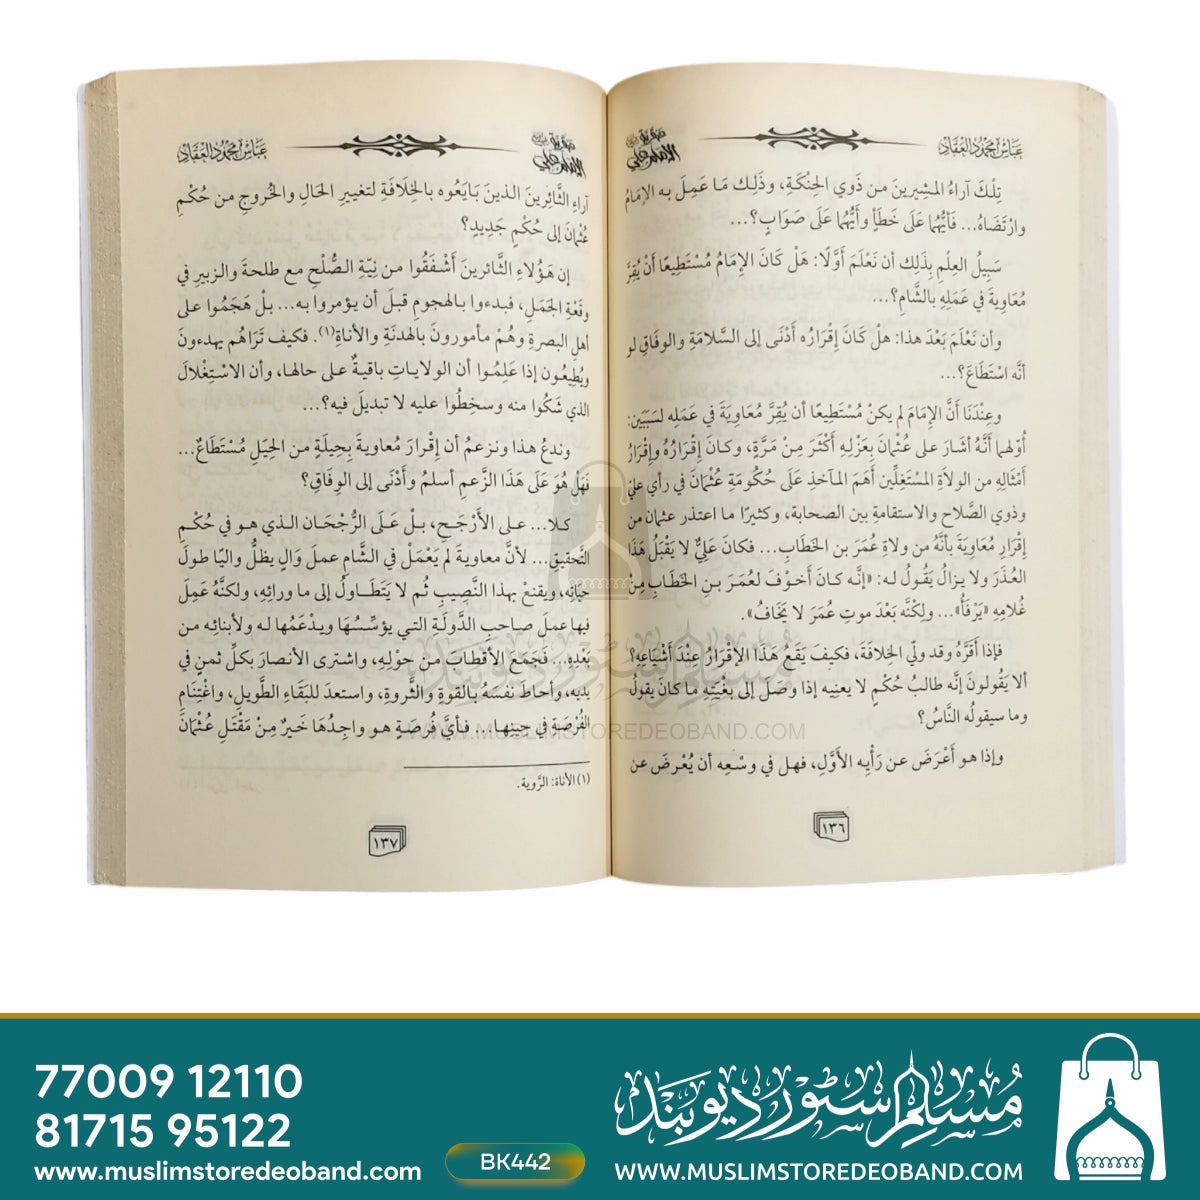 عباس محمود العقاد
عبقرية
الإمام علي
تِلْكَ آراءُ المشِيرينَ من ذَوِي الحِنْكَةِ، وذَلِكَ مَا عَمِلَ به الإمَامُ
وارْتَضَاهُ... فَأيُّهُما عَلَى خَطَأٍ وأيُّهُما عَلَى صَوَابٍ؟...
سَبِيلُ العِلْمِ بِذَلِكَ أن نَعْلَمَ أوَّلًا: هَلْ كَانَ الإمَامُ مُسْتَطِيعًا أنْ يُقِرَّ
مُعَاوِيَةَ في عَمَلِهِ بالشَّامِ؟...
وأن نَعْلَمَ بَعْدَ هذا: هلْ كَانَ إقْرَارُه أدْنَى إلى السَّلامَةِ والوِفَاقِ لو
أنَّه اسْتَطَاعَ؟...
وعِنْدَنَا أنَّ الإمَامَ لم يكنْ مُسْتَطِيعًا أن يُقِرَّ مُعَاوِيَةَ في عَمَلِه لسَبَبَين:
أوّلهما أنَّهُ أشَارَ على عُثْمَانَ بِعَزْلِهِ أكْثَرَ مِنْ مَرَّةٍ، وكَانَ إقْرَارُهُ وإقْرَارُ
أمْثَالِهِ من الولَاةِ المسْتَغِلِّين أهَمَ المآخِذِ عَلَى حُكُومَةِ عُثْمَانَ في رأي عليٍّ
وذوي الصَّلاح والاستقامةِ بين الصحابة، وكثيرًا ما اعتذر عثمان من
إقْرَارِ مُعَاوِيَةَ بأنَّه من ولاةِ عُمَرَ بن الخَطَّابِ... فكانَ عَلِيٌّ لا يَقْبَلُ هَذَا
العُذْرَ ولا يزالُ يَقُولُ له: «إنَّه كان أخوْفَ لعُمَرَ بنِ الخَطَّابِ مِنْ
غُلامِهِ «يَرْفَأُ»... ولكنَّه بَعْدَ موتِ عُمَرَ لا يَخَافُ».
فإذا أقرَّهُ وقد ولّي الخِلافَة، فكيفَ يَقَعُ هَذَا الإقْرَارُ عِنْدَ أشْيَاعِهِ؟
ألا يَقُولونَ إنَّه طالبُ حُكْمٍ لا يعنِيه إذا وصَلَ إلى بغْيَتِهِ ما كانَ يقولُ
وما سيقولُه النَّاسُ؟
وإذا هو أعْرَضَ عن رَأْيِه الأوَّلِ، فهل في وسْعِه أن يُعْرِضَ عن
١٣٦
عبقرية
الإمام علي
عباس محمود العقاد
آراءِ الثَّائِرينَ الذينَ بَايَعُوه بالخِلَافَةِ لتغييرِ الحَالِ والخُروجِ من حُكْمِ
عُثْمانَ إلى حُكْمٍ جَدِيدٍ؟
إن هَؤُلاءِ الثَّائرينَ أشْفَقُوا من نِيّةِ الصُّلْحِ مع طلحةَ والزبيرِ في
وقْعَةِ الجَمَلِ، فبدءوا بالهجومِ قبلَ أن يؤمروا به... بلْ هَجَمُوا على
أهلِ البصرةِ وهُمْ مأمورونَ بالهدنَةِ والأناةِ(١). فكيفَ تَرَاهُم يهدءونَ
ويُطِيعُون إذا عَلِمُوا أن الولاياتِ باقيةٌ على حالها، وأن الاسْتِغْلالَ
الذي شَكُوا منه وسخِطُوا عليه لا تبديلَ فيه؟...
وندعُ هذا ونزعمُ أن إقْرارَ مُعاويةَ بِحِيلَةٍ من الحِيَلِ مُسْتَطَاعٌ...
فهَلْ هُوَ عَلَى هَذَا الزَّعمِ أسلمُ وأدْنَى إلى الوِفَاقِ؟
كلا... على الأَرْجَحِ، بلْ عَلَى الرُّجْحَان الذي هو في حُكْمِ
التَّحقيقِ... لأنَّ معاويةَ لم يَعْمَلْ في الشَّامِ عملَ وَالٍ يظلُّ واليًا طولَ
حَيَاتِه، ويقنعُ بهذا النَّصِيبِ ثُم لا يَتَطَاولُ إلى ما ورائِهِ، ولكنَّهُ عَمِلَ
فيها عملَ صاحبِ الدَّولَةِ التي يؤسِّسُهَا ويدْعَمُها له ولأبنائِه من
بَعْدِهِ... فجَمَعَ الأقْطابَ من حوْلِهِ، واشترى الأنصارَ بكلِّ ثمنٍ في
يديه، وأحاطَ نفسَهُ بالقوةِ والثَّروةِ، واستعدَ للبَقَاءِ الطَّويلِ، واغْتِنَامِ
الفُرْصَةِ في حِينِها... فأيَّ فُرصَةٍ هو واجِدُهَا خَيرٌ مِنْ مَقْتَلِ عُثْمَانَ
(١) الأناة: الرَّوية.
١٣٧
مسلم سٹور دیوبند
WWW.MUSLIMSTOREDEOBAND.COM
77009 12110
81715 95122
www.muslimstoredeoband.com
BK442
مسلم سٹور دیوبند
WWW.MUSLIMSTOREDEOBAND.COM